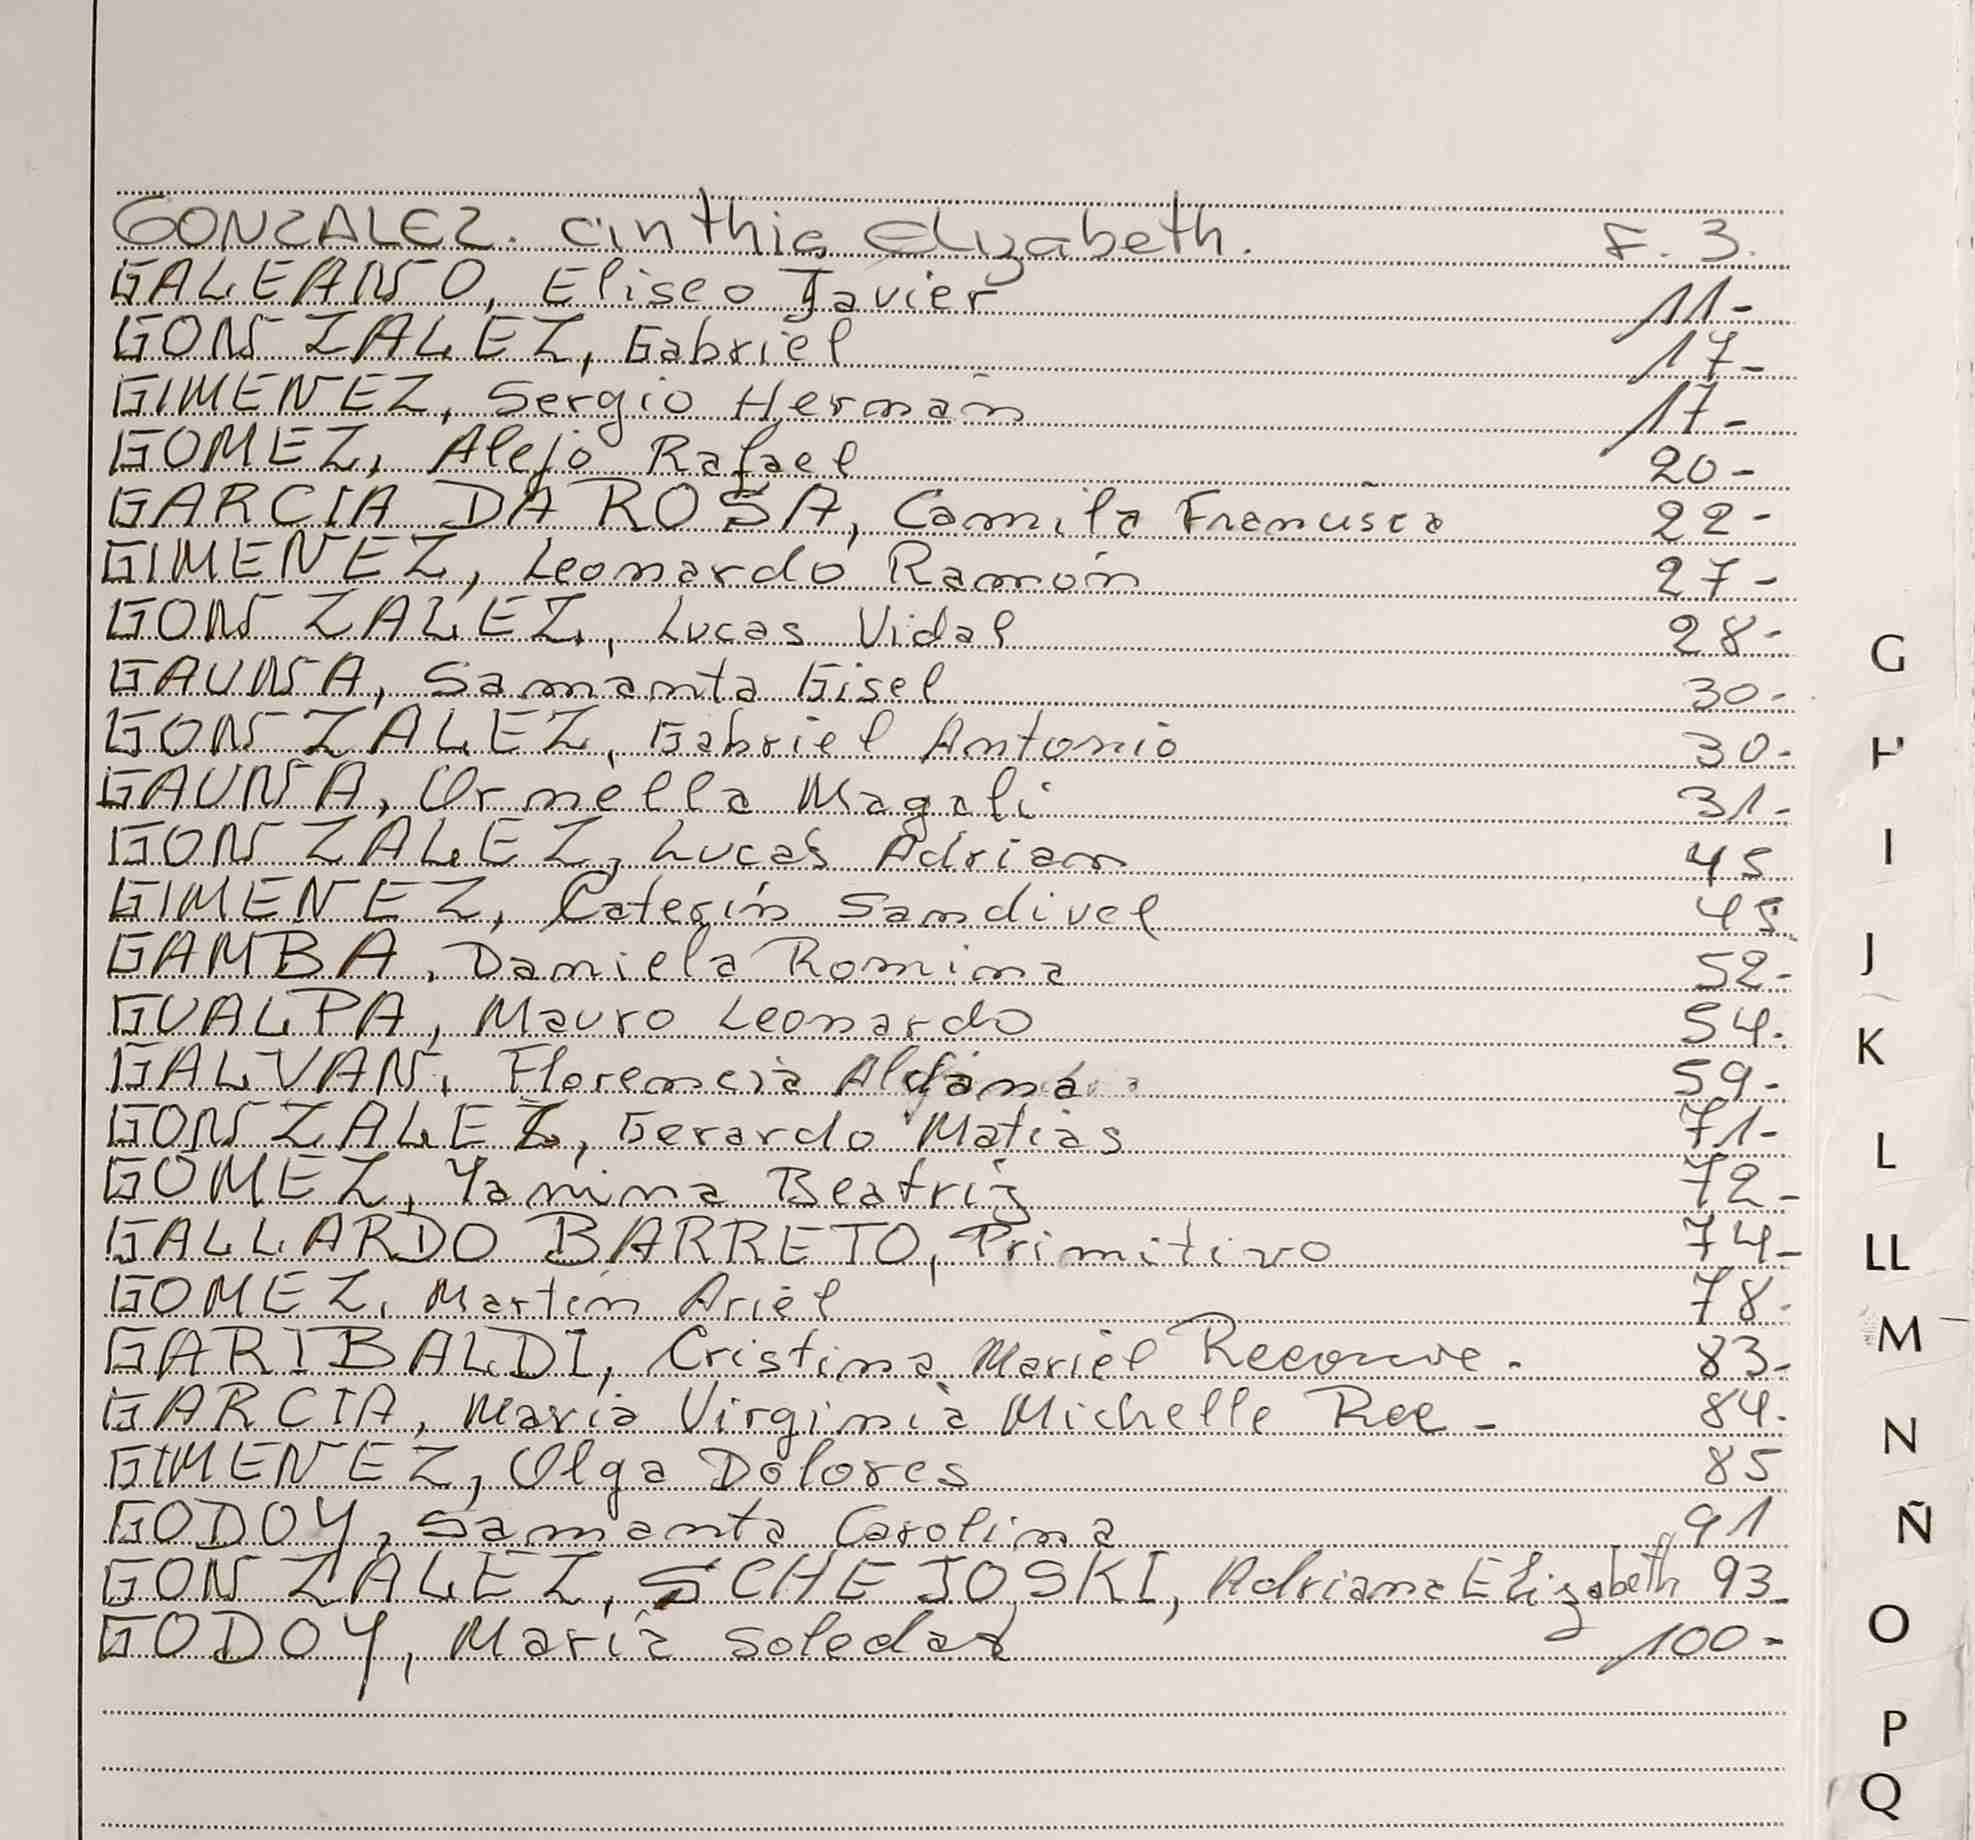 GONZALEZ. Cinthia Elyzabeth. F. 3.
GALEANO, Eliseo Javier 11-
GONZALEZ, Gabriel 17-
GIMENEZ, Sergio Hernán 17-
GOMEZ, Alejo Rafael 20-
GARCIA DA ROSA, Camila Francisca 22-
GIMENEZ, Leonardo Ramón 27-
GONZALEZ, Lucas Vidal 28-
GAUNA, Samanta Gisel 30-
GONZALEZ, Gabriel Antonio 30-
GAUNA, Ornella Magali 31-
GONZALEZ, Lucas Adrian 45
GIMENEZ, Caterin Sandivel 45
GAMBA, Daniela Romina 52-
GUALPA, Mauro Leonardo 54.
GALVAN, Florencia 59-
GONZALEZ, Gerardo Matias 71-
GOMEZ, Yanina Beatriz 72-
GALLARDO BARRETO, Primitivo 74-
GOMEZ, Martin Ariel 78-
GARIBALDI, Cristina Mariel 83-
GARCIA, Maria Virginia Michelle Rec - 84.
GIMENEZ, Olga Dolores 85
GODOY, Samanta Carolina 91
GONZALEZ, SCHEJOSKI, Adriana Elizabeth 93-
GODOY, Maria Soledad 100-
G
H
I
J
K
L
LL
M
N
Ñ
O
P
Q